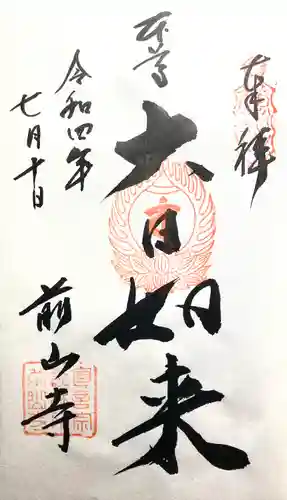 奉拝
本尊
大日如来
令和四年
七月十日
前山寺